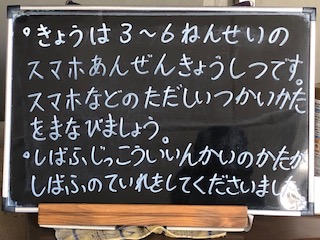 ○きょうは３～６ねんせいの
スマホあんぜんきょうしつです。
スマホなどのただしいつかいかた
をまなびましょう。
○しばふじっこういいんかいのかたが
しばふのていれをしてくださいました